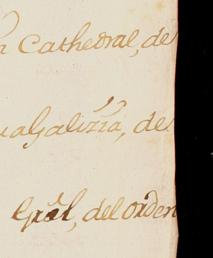 Cathedral, de
Galizia, de
Grãl, del orden